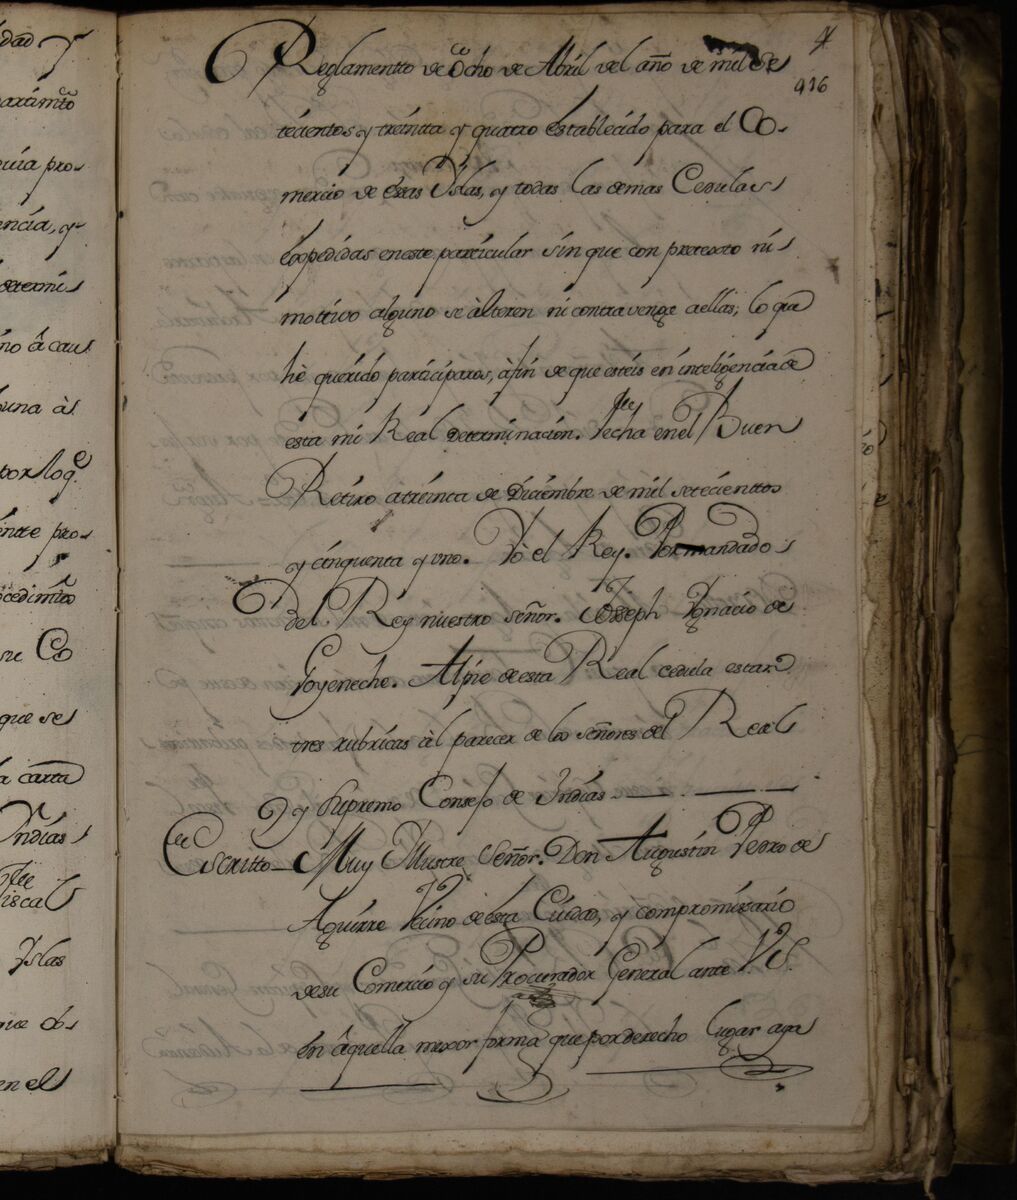 dad y
partimto
uia pro-
encia, y
determi
no â cau
buna à
por loq.e
ente pro-
ocedimto
su Co
que se
la carta
Yndias
fiscal
Yslas
en el
4
416
Reglamentto de Ocho de Abril del año de mil Se
tecientos y treinta y quatro establecido para el Co-
mercio de esas Yslas, y todas las demas Cedulas
Expedidas eneste particular sin que con pretexto ni
mottivo alguno se àlteren ni contravenga aellas; lo que
hè querido participaros, àfin de que esteis en inteligencia de
esta mi Real determinacion. fecha enel Buen
Retiro atreinta de Diciembre de mil setecienttos
y cinquenta y uno. Yò el Rey. Por mandado
del Rey nuestro señor. Joseph Ygnacio de
Goyeneche. Alpie de esta Real cedula estan
tres rubricas àl parecer de los señores del Real
y Supremo Consejo de Indias
Escritto — Muy Illustre Señor. Don Augustin Pedro de
Aguirre Vecino de esta Ciudad, y compromisario
de su Comercio y su Procurador General ante V.S.
en âquella mexor forma que por derecho lugar aya